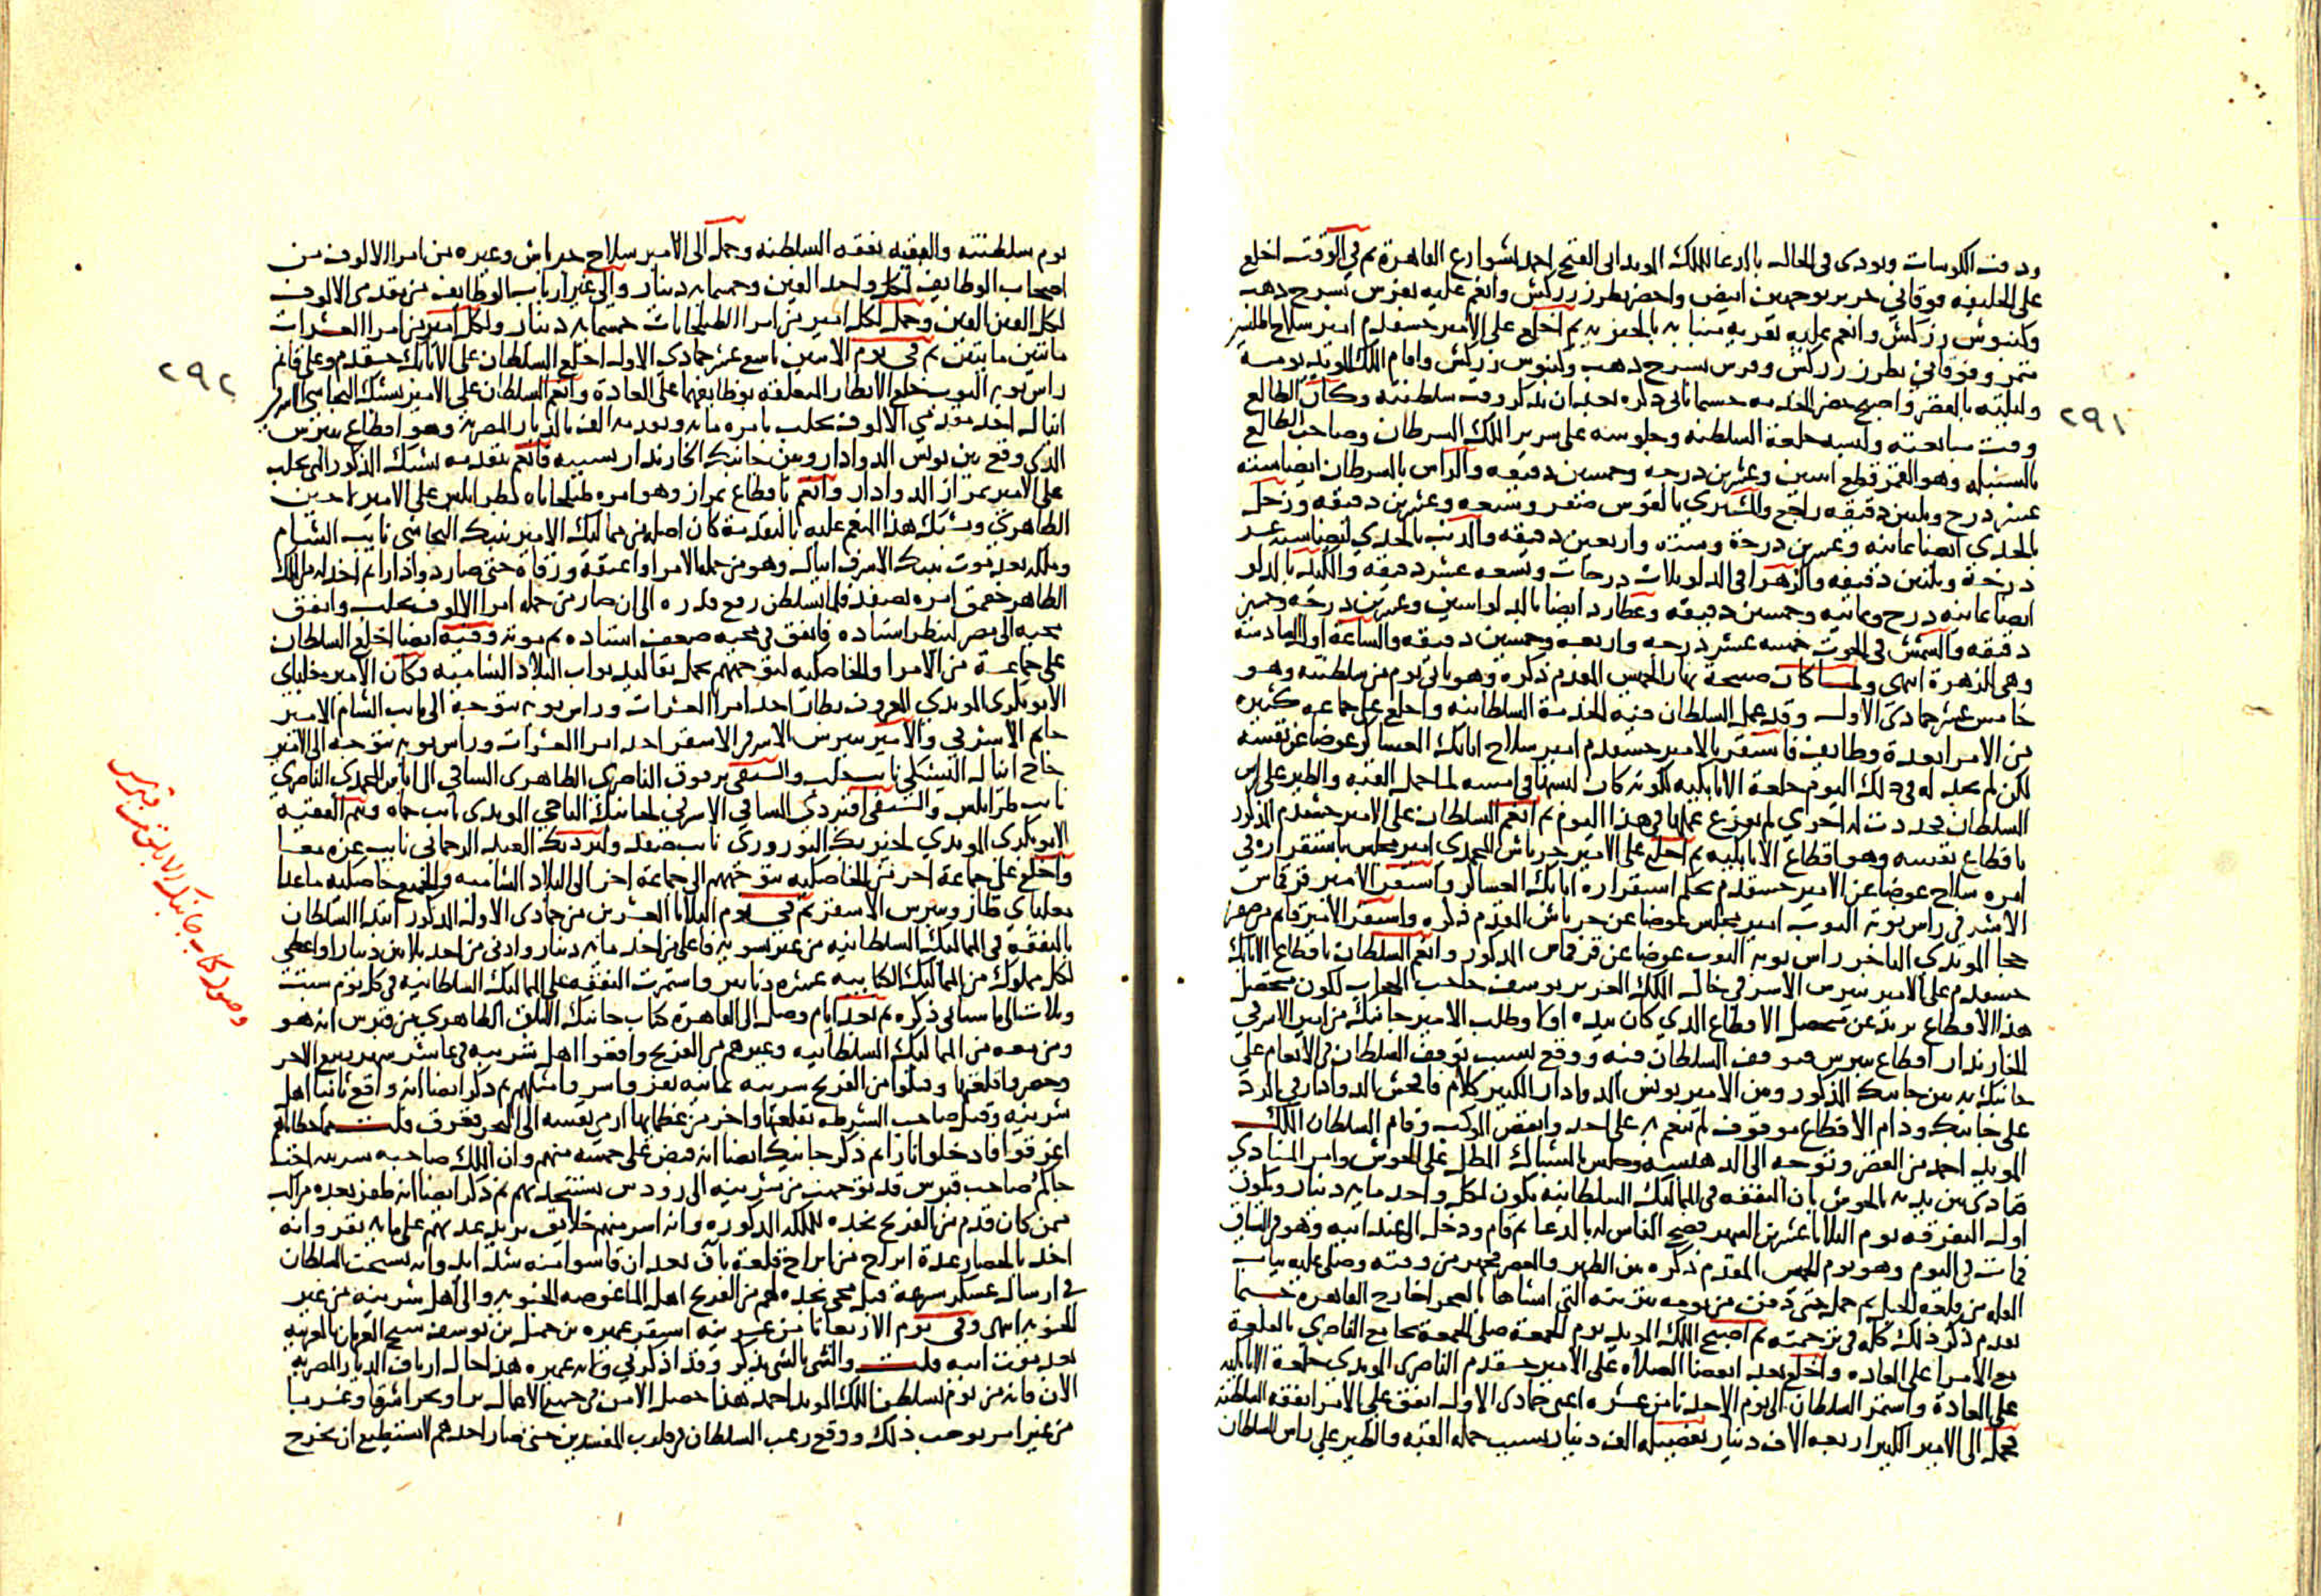 ودقت الكوسات ونودى فى الحال بالدعا للملك المويد ابى الفتح احمد بشوارع القاهرة ثم في الوقت اخلع
على الخليفه فوقانى حرير بوجهين ابيض واخضر بطرز زركش وانعم عليه بفرس بسرج ذهب
وكنبوش زركش وانعم عليه بقريه منبابه بالجيزيه ثم اخلع على الامير خشقدم امير سلاح اطلسين
متمر وفوقاني بطرز زركش وفرس بسرج ذهب وكنبوش زركش واقام الملك المويد يومه
وليلته بالقصر واصبح حضر الخدمه حسبما ياتى ذكره بعد ان نذكر وقت سلطنته وكان الطالع
وقت مبايعته ولبسه خلعة السلطنه وجلوسه على سرير الملك السرطان وصاحب الطالع
بالسنبله وهو القمر قطع اثنين وعشرين درجه وخمسين دقيقه والراس بالسرطان ايضا ستة
عشر درج وثلثين دقيقه راجع والمشتري بالقوس صفر وتسعه وعشرين دقيقه وزحل
بالجدى ايضا ثمانيه وعشرين درجة وستة واربعين دقيقه والذنب بالجدي ايضا ستة عشر
درجة وثلثين دقيقه والزهرا فى الدلو ثلاث درجات وتسعه عشر دقيقه والكيد بالدلو
ايضا ثمانيه درج وثمانيه وخمسين دقيقه وعطارد ايضا بالدلو اثنين وعشرين درجه وخمسين
دقيقه والشمس في الحوت خمسه عشر درجه واربعه وخمسين دقيقه والساعة اول السادسة
وهى الزهرة انتهى ولما كان صبيحة نهار الخميس المقدم ذكره وهو ثانى يوم من سلطنته وهو
خامس عشر جمادى الاولى وقد عمل السلطان فيه الخدمة السلطانيه واخلع على جماعه كثيره
من الامرا بعدة وظايف فاستقر بالامير خشقدم امير سلاح اتابك العساكر عوضا عن نفسه
لكن لم يجد له فى ذلك اليوم خلعة الاتابكيه لكونه كان لبسها فى امسه لما حمل القبه والطير على راس
السلطان فجددت له اخرى لم يفرغ عملها في هذا اليوم ثم انعم السلطان على الامير خشقدم المذكور
باقطاع نفسه وهو اقطاع الاتابكيه ثم اخلع على الامير جرباش المحمدى امير مجلس باستقراره في
امره سلاح عوضا عن الامير خشقدم بحكم استقراره اتابك العساكر واستقر الامير قرقماس
الاشرفى راس نوبه النوب امير مجلس عوضا عن جرباش المقدم ذكره واستقر الامير قانم من صفر
خجا المويدى التاجر راس نوبه النوب عوضا عن قرقماس المذكور وانعم السلطان باقطاع الاتابك
خشقدم على الامير بيبرس الاشرفى خال الملك العزيز يوسف حاجب الحجاب لكون متحصل
هذا الاقطاع يزيد عن متحصل الاقطاع الذي كان بيده اولا وطلب الامير جانبك من امير الاشرفي
الخازندار اقطاع بيبرس فتوقف السلطان فيه ووقع بسبب توقف السلطان فى الانعام على
جانبك به بين جانبك المذكور وبين الامير يونس الدوادار الكبير كلام فافحش الدوادار فى الرد
على جانبك ودام الاقطاع موقوف لم ينعم به على احد وانفض الموكب وقام السلطان الملك
المويد احمد من القصر وتوجه الى الدهيشه وجلس بالشباك المطل على الحوش وامر المنادي
فنادى بين يديه بالحوش بان النفقه فى المماليك السلطانيه يكون لكل واحد مايه دينار وتكون
اول التفرقه يوم الثلاثا عشرين الشهر فضج الناس له بالدعا ثم قام ودخل الى عند ابيه وهو فى السياق
فمات فى اليوم وهو يوم الخميس المقدم ذكره بين الظهر والعصر فجهز من وقته وصلى عليه بباب
القله من قلعة الجبل ثم حمل حتى دفن من يومه بتربته التى انشاها بالصحرا خارج القاهره حسبما
تقدم ذكر ذلك كله فى ترجمته ثم اصبح الملك المويد يوم الجمعة صلى الجمعة بجامع الناصرى بالقلعة
مع الامرا على العاده واخلع بعد انقضا الصلاه على الامير خشقدم الناصرى المويدى خلعة الاتابكيه
على العادة واستمر السلطان الى يوم الاحد ثامن عشره اعنى جمادى الاولى انفق على الامرا نفقة السلطنه
فحمل الى الامير الكبير اربعه الاف دينار تفصيله الف دينار بسبب حمله القبه والطير على راس السلطان
٢٩١
يوم سلطنته والبقيه نفقه السلطنه وحمل الى الامير سلاح جرباش وغيره من امرا الالوف من
اصحاب الوظايف لكل واحد الفين وخمسمايه دينار والى غير ارباب الوظايف من مقدمى الالوف
لكل الفين الفين وحمل لكل امير من امرا الطبلخانات خمسمايه دينار ولكل امير من امرا العشرات
مايتين مايتين ثم فى يوم الاثنين تاسع عشر جمادى الاولى اخلع السلطان على الاتابك خشقدم وعلى قانم
راس نوبه النوب خلع الانظار المتعلقه بوظايفهما على العادة وانعم السلطان على الامير يشبك البجاسى الاشرفى
اينال احد مقدمي الالوف بحلب بامره مايه وتقدمه الف بالديار المصريه وهو اقطاع بيبرس
الذي وقع بين يونس الدوادار وبين جانبك الخازندار بسببه فانعم بتقدمه يشبك المذكور التى بحلب
على الامير تمراز الدوادار وانعم باقطاع تمراز وهو امره طبلخاناه بطرابلس على الامير
الظاهري ويشبك هذا المنعم عليه بالتقدمة كان اصله من مماليك الامير تنبك البجاسى نايب الشام
وملكه بعد موت تنبك الاشرف اينال وهو من جملة الامرا واعتقه ورقاه حتى صار دوادارا ثم اخذ له من الملك
الظاهر جقمق امره بصفد فلما تسلطن رفع قدره الى ان صار من جمله امرا الالوف بحلب واتفق
مجيه الى مصر لينظر استاده فاتفق فى مجيه ضعف استاده ثم موته وفيه ايضا اخلع السلطان
على جماعة من الامرا والخاصكيه لتوجههم بحمل تقاليد نواب البلاد الشاميه فكان الامير مغلباى
الابوبكرى المويدى المعروف بطاز احد امرا العشرات وراس نوبه يتوجه الى نايب الشام الامير
جانم الاشرفي والامير بيبرس الاشرفى الاشقر احد امرا العشرات وراس نوبه يتوجه الى الامير
حاج اينال اليشبكي نايب حلب والسيفى برقوق الناصرى الظاهرى الساقى الى اياس المحمدى الناصرى
نايب طرابلس والسيفى اقبردى الساقي الاشرفى لجانبك التاجى المويدى نايب حماه وتنم الفقيه
الابوبكرى المويدي لخيربك النوروزى نايب صفد ولبردبك العبد الرحماني نايب غزه معا
واخلع على جماعة اخر من الخاصكيه بتوجههم الى جماعة اخر الى البلاد الشاميه والجميع خاصكيه ما عدا
مغلباي طاز وبيبرس الاشقر ثم فى يوم الثلاثا العشرين من جمادى الاولى المذكور ابتدا السلطان
بالنفقه فى المماليك السلطانيه من غير تسويه فاعلى من اخذ مايه دينار وادنى من اخذ ثلاثين دينارا واعطى
لكل مملوك من المماليك الكتابيه عشره دنانير واستمرت النفقه على المماليك السلطانيه فى كل يوم سبت
وثلاثا الى ما سياتى ذكره ثم بعد ايام وصل الى القاهرة كتاب جانبك الابلق الظاهري من قبرس انه هو
ومن معه من المماليك السلطانيه وغيرهم من الفرنج واقعوا اهل شرينيه فى عاشر شهر ربيع الاخر
وحصروا قلعتها وقتلوا من الفرنج بشرينيه ثمانيه نفر واسروا مثلهم ثم ذكر ايضا انه واقع ثانيا اهل
شرينيه وقتل صاحب الشرطه بقلعتها واخر من عظمايها ارمى بنفسه الى البحر فغرق قلت مما خطاياهم
اغرقوا فادخلوا نارا ثم ذكر جانبك ايضا انه قبض على خمسه منهم وان الملك صاحبه شرينيه اخت
حاكم صاحب قبرس قد توجهت من شرينيه الى رودس تستنجد بهم ثم ذكر ايضا انه ظفر بعده مراكب
ممن كان قدم من الفرنج نجده للملكه المذكوره وانه اسر منهم خلايق يزيد عدتهم على مايه نفر وانه
اخذ بالحصار عدة ابراج من ابراج قلعة بافى بعد ان قاسوا منه شدايد وانه يستحث السلطان
فى ارسال عسكر بسرعة قبل مجى نجده لهم من الفرنج اهل الماغوصه الجنويه والى اهل شرينيه من غير
الجنويه انتهى وفى يوم الاربعا ثامن عشرينه استقر عميره بن جميل بن يوسف شيخ العربان بالغربيه
بعد موت ابيه قلت والشى بالشى يذكر وقد اذكرني ولايه عميره هذا حال ارياف الديار المصريه
الان فانه من يوم تسلطن الملك المويد احمد هذا حصل الامن فى جميع الاعمال برا وبحرا شرقا وغربا
من غير امر يوجب ذلك ووقع رعب السلطان فى قلوب المفسدين حتى صار احدهم لا يستطيع ان يخرج
٢٩٢
وصول كتاب جانبك الابلق من قبرس